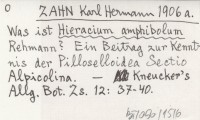 O
ZAHN Karl Hermann 1906 a.
Was ist Hieracium amphibolum
Rehmann? Ein Beitrag zur Kennt-
nis der Pilloselloidea Sectio
Alpicolina. — Kneucker's
Allg. Bot. Zs. 12: 37-40.